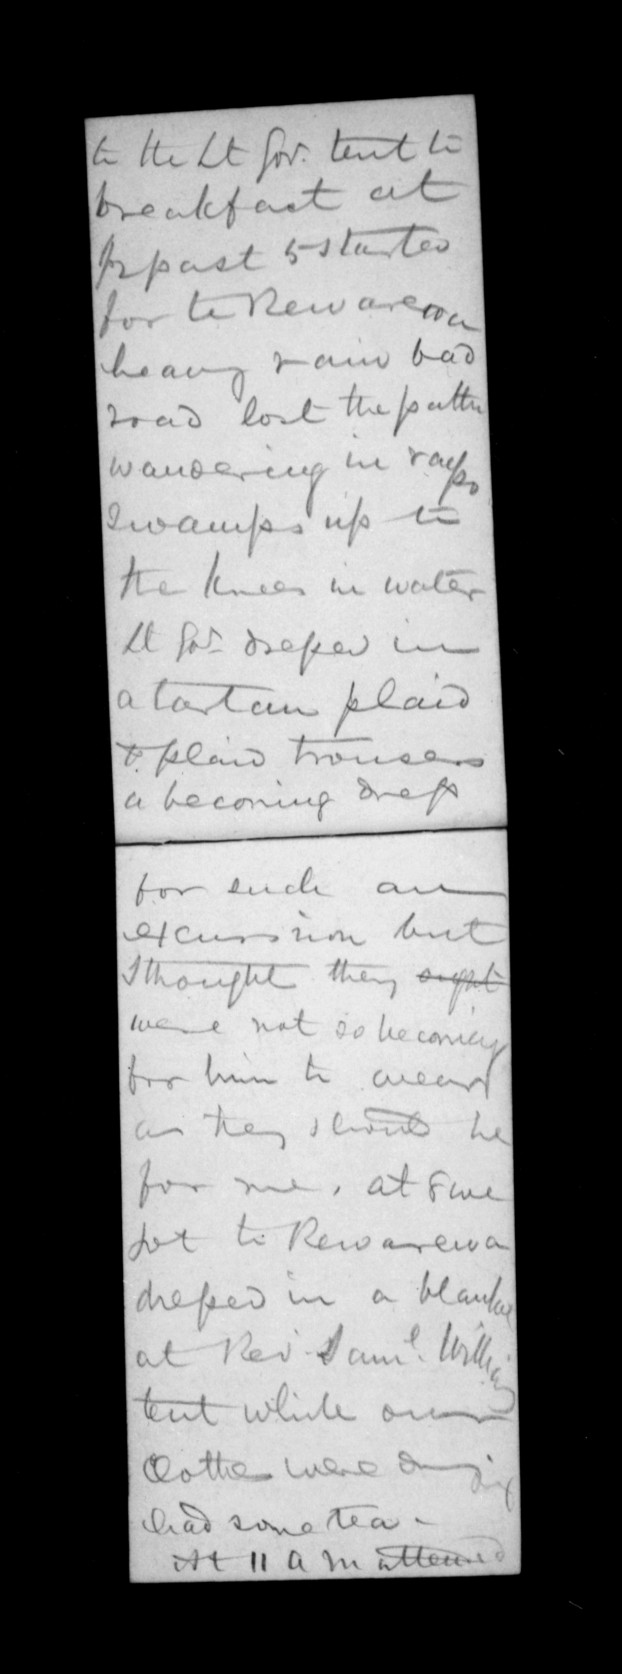 to the Lt Gov. tent to
breakfast at
½ past 5 started
for te Rewarewa
heavy rain bad
road lost the path
wandering in raupo
swamps up to
the knees in water
Lt Gov. dressed in
a tartan plaid
& plaid trousers
a becoming dress
for such an
excursion but
I thought they
were not so becoming
for him to wear
as they should be
for me, at 8 we
got to Rewarewa
dressed in a blanket
at Rev. Saml. Williams
tent while our
clothes were drying
had some tea -
At 11 A M attended